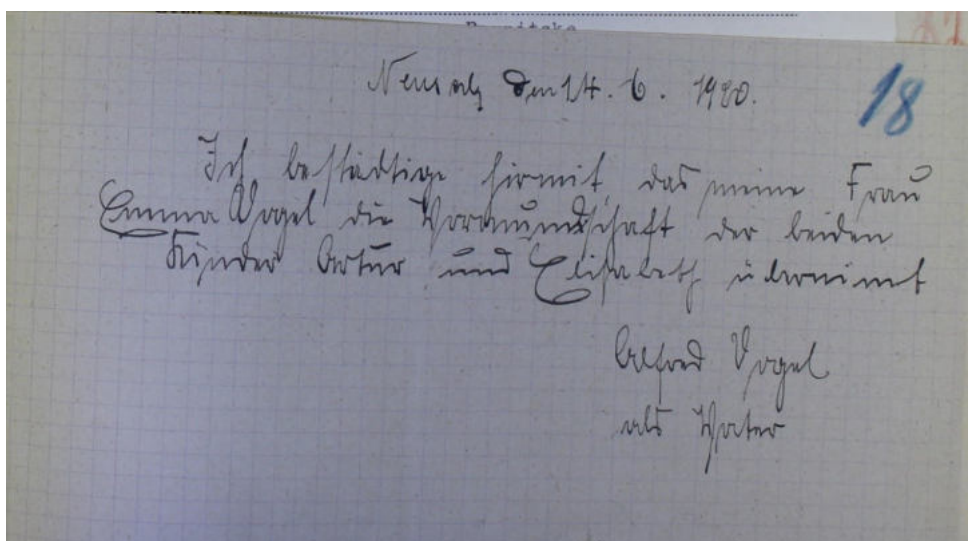 Neusalz den 14. 6. 1920.
18
Ich bestädtige hirmit, das meine Frau
Emma Vogel die Vormundschaft der beiden
Kinder Artur und Elisabeth übernimt
Alfred Vogel
als Vater